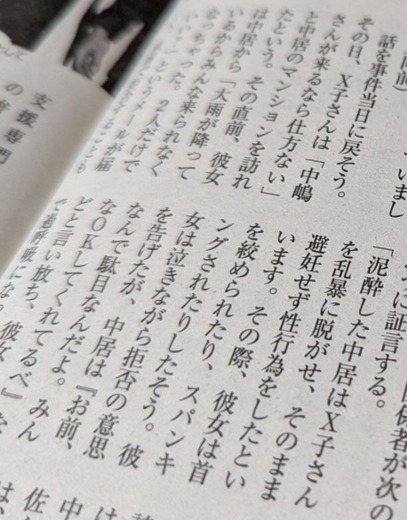 いまし
話を事件当日に戻そう。
その日、X子さんは「中嶋
さんが来るなら仕方ない」
と中居のマンションを訪れ
たという。その直前、彼女
は中居から「大雨が降って
いるからみんな来られなく
なっちゃった。2人だけで
メールが届
関係者が次の
うに証言する。
「泥酔した中居はX子さん
を乱暴に脱がせ、そのまま
避妊せず性行為をしたとい
います。その際、彼女は首
を絞められたり、スパンキ
ングされたりしたそう。彼
女は泣きながら拒否の意思
を告げたが、中居は『お前、
なんで駄目なんだよ。みん
なOKしてくれてるべ』な
どと言い放ち、
支援専門
の弁